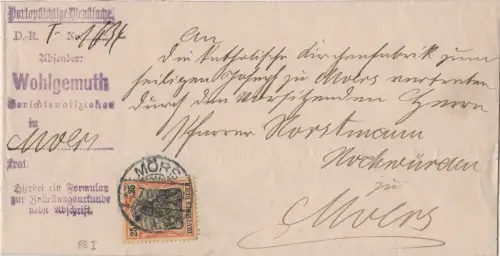 Portopflichtige Dienstsache.
D.-R. F No.
Absender:
Wohlgemuth
Gerichtsvollzieher
in
Moers
Hierbei ein Formular
zur Zustellungsurkunde
nebst Abschrift.
88 I
An
die katholische Kirchenfabrik zum
heiligen Josef zu Moers vertreten
durch den Vorsitzenden Herrn
Pfarrer Horstmann
Hochwürden
zu
Moers
MÖRS
25 25
DEUTSCHES REICH